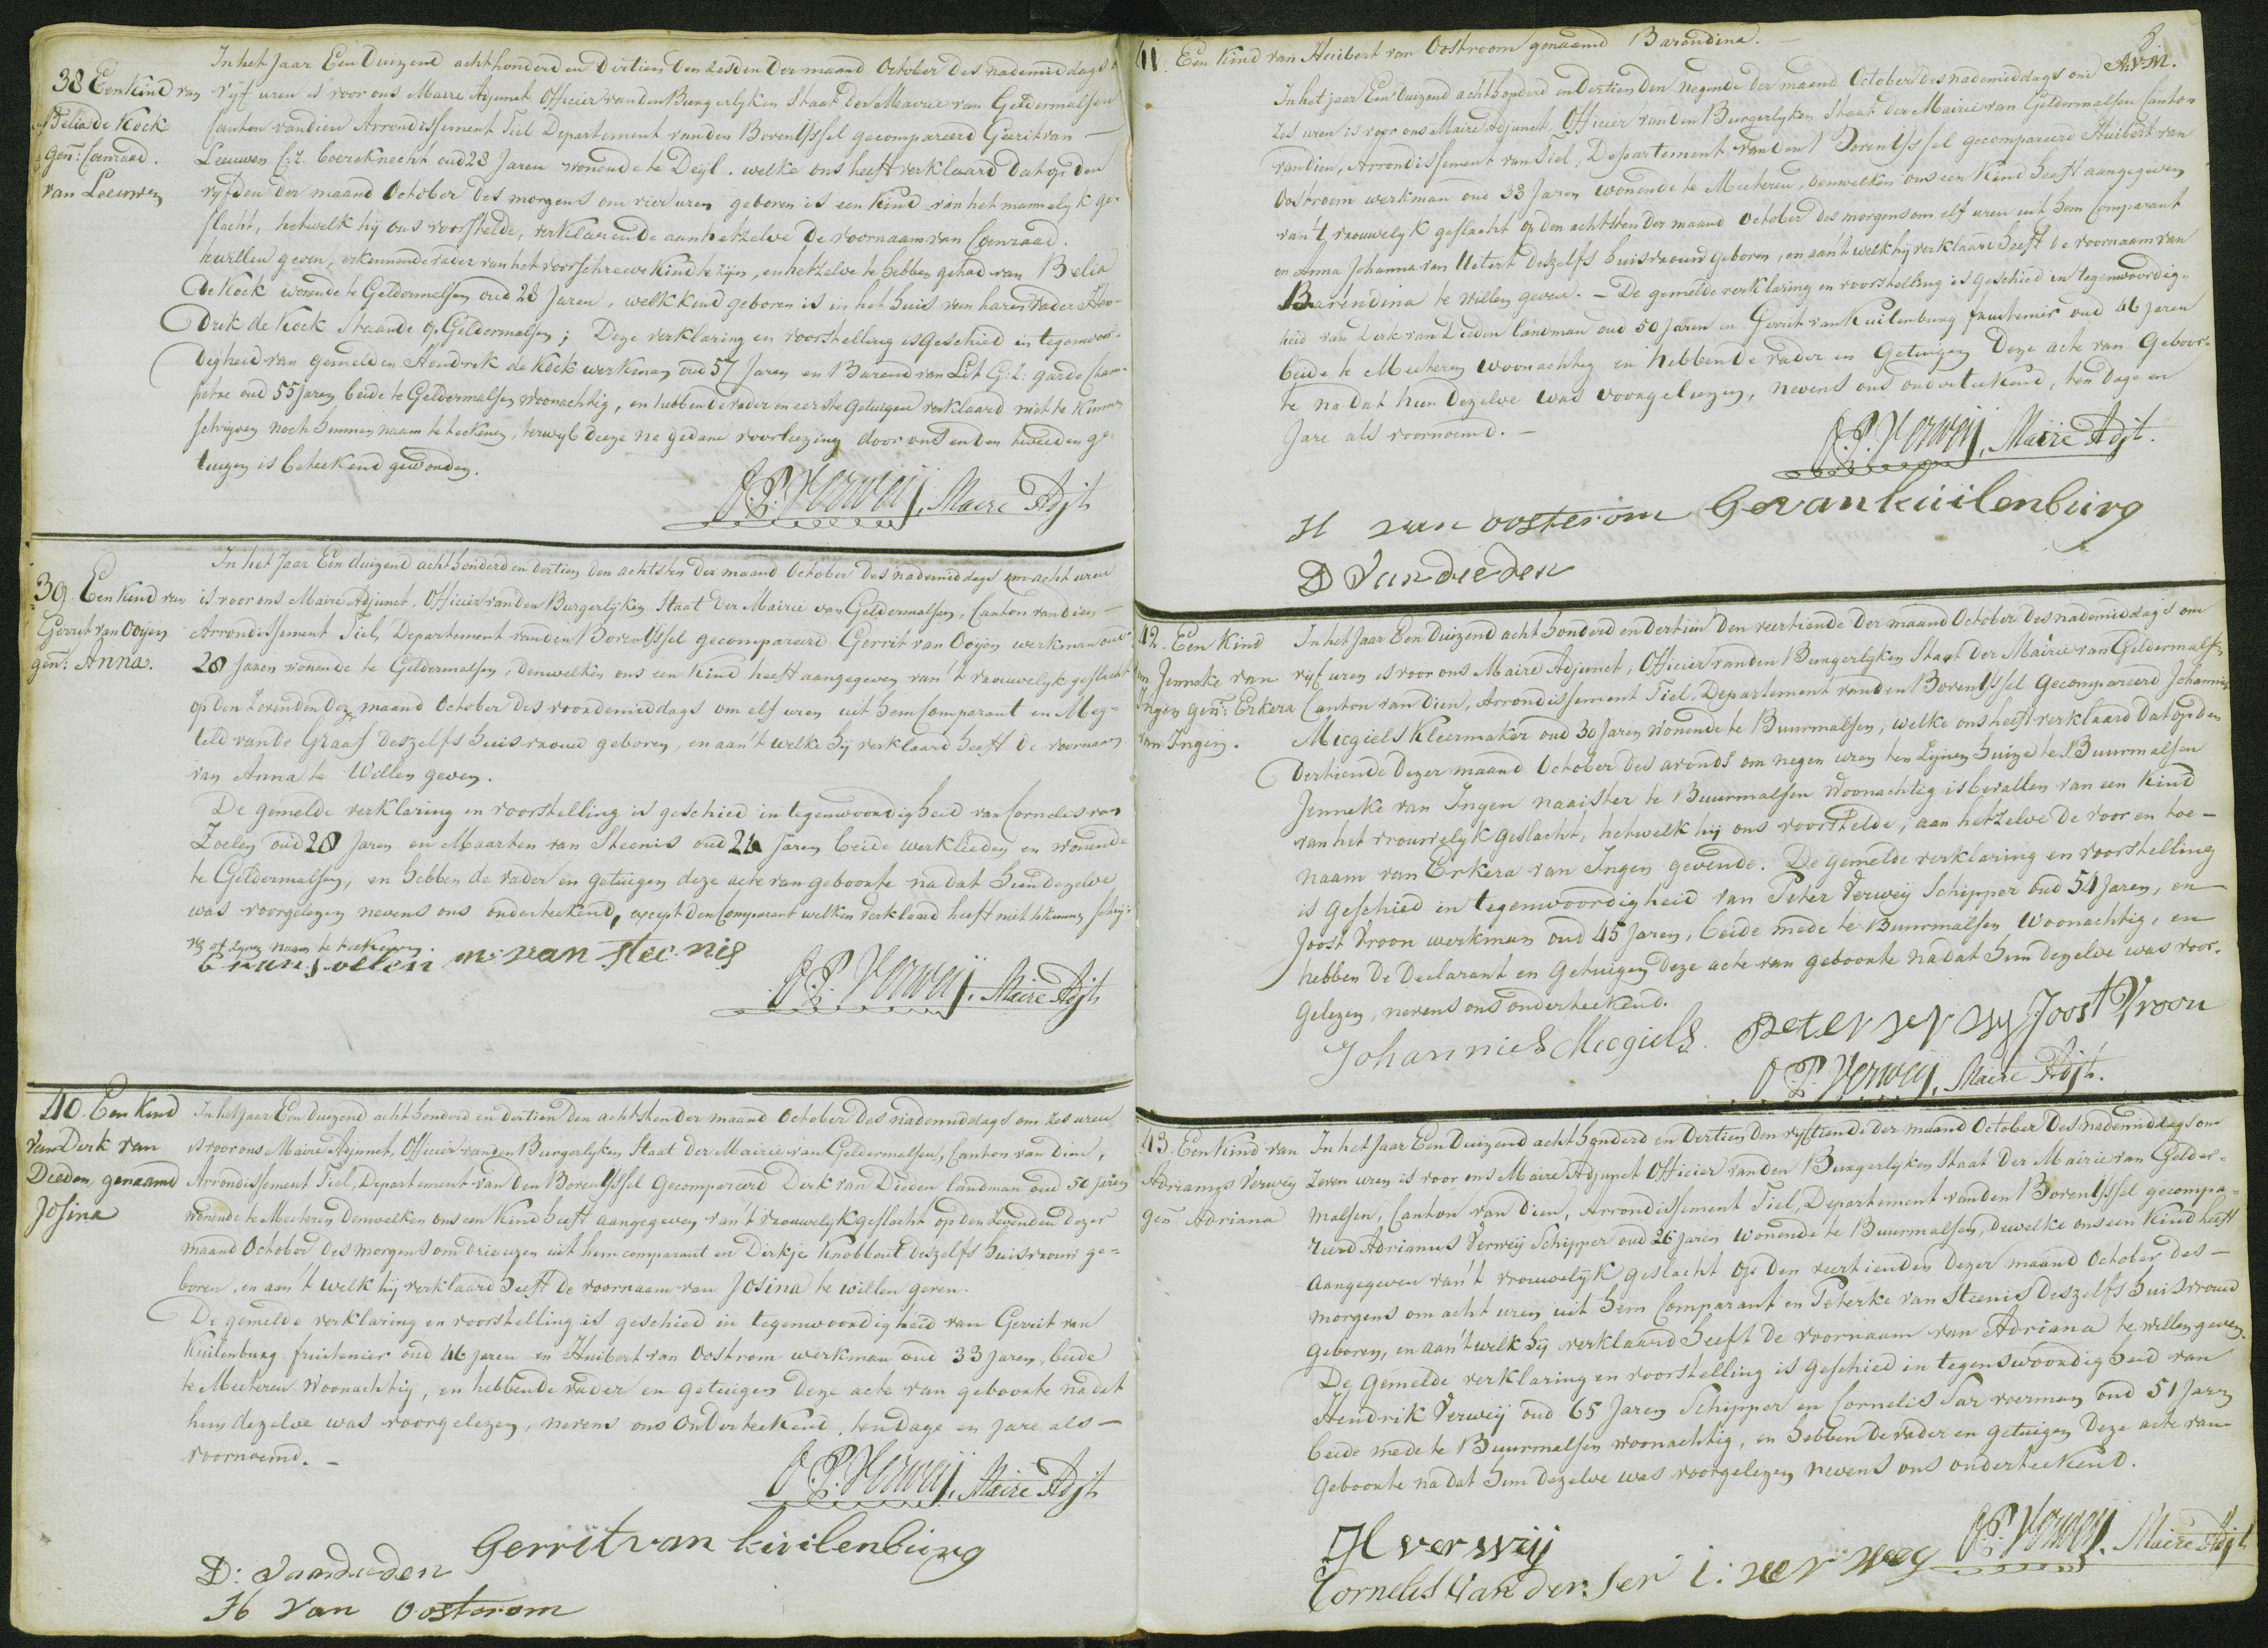 38 Een Kind van
Belia de Kock
gen: Coenraad.
van Leeuwen
In het Jaar Een Duizend achthonderd en Dertien den zesden der maand October des nademiddags
vyf uren is voor ons Maire Adjunct Officier van den Burgerlyken Staat der Mairie van Geldermalsen
Canton van dien Arrondissement Tiel Departement van den Boven Yssel gecompareerd Gerrit van —
Leeuwen C:z. boereknecht oud 28 Jaren wonende te Deyl. welke ons heeft verklaard dat op den
vyfden der maand October des morgens om vier uren geboren is een kind van het mannelyk ge-
slacht, hetwelk hy ons voorstelde, verklarende aan hetzelve de voornaam van Coenraad.
te willen geven, erkennende vader van het voorschreeve kind te zijn, en hetzelve te hebben gehad van Belia
de Kock wonende te Geldermalsen oud 28 Jaren, welk kind geboren is in het huis van haren vader Hen-
drik de Kock staande op Geldermalsen; Deze verklaring en voorstelling is geschied in tegenwoor-
digheid van gemelden Hendrik de Kock werkman oud 57 Jaren en Barend van Lit G:z: garde Cham-
petre oud 55 jaren beide te Geldermalsen woonachtig, en hebben de vader en eerste getuigen verklaard niet te kunnen
schryven noch hunnen naam te teekenen, terwyl deeze na gedane voorleezing door ons en den tweeden ge-
tuigen is geteekend geworden.
O.P. Verweij, Maire Adjt
39 Een Kind van
Gerrit van Ooijen
gen: Anna.
In het Jaar Een duizend achthonderd en dertien den achtsten der maand October des nademiddags om acht uren
is voor ons Maire Adjunct, Officier van den Burgerlyken Staat der Mairie van Geldermalsen, Canton van dien —
Arrondissement Tiel, Departement van den Boven Yssel gecompareerd Gerrit van Ooijen werkman oud
28 Jaren wonende te Geldermalsen, denwelken ons een kind heeft aangegeven van 't vrouwelyk geslacht
op den Zevenden dezer maand October des voordemiddags om elf uren uit hem Comparant en Meg-
teld van de Graaf deszelfs huisvrouw geboren, en aan 't welke hy verklaard heeft de voornaam
van Anna te Willen geven.
De gemelde verklaring en voorstelling is geschied in tegenwoordigheid van Cornelis van
Zoelen oud 28 Jaren en Maarten van Steenis oud 24 Jaren beide werklieden en wonende
te Geldermalsen, en hebben de vader en getuigen deze acte van geboorte na dat hun dezelve
was voorgelezen nevens ons onderteekend, except den Comparant welken verklaard heeft niet te kunnen schrij-
ven of zynen naam te teekenen.
C van soelen m: van stee nis
O.P. Verweij, Maire Adjt
40. Een Kind
van Derk van
Dieden, genaamd
Josina
In het jaar Een duizend achthonderd en dertien den achtsten der maand October des nademiddags om zes uren
is voor ons Maire Adjunct, Officier van den Burgerlyken Staat der Mairie van Geldermalsen, Canton van dien,
Arrondissement Tiel, Departement van den Boven Yssel gecompareerd Derk van Dieden landman oud 50 jaren
wonende te Meeteren denwelken ons een Kind heeft aangegeven van 't vrouwelyk geslacht op den Zevenden dezer
maand October des morgens om drie uren uit hem comparant en Dirkje Knobbout deszelfs huisvrouw ge-
boren, en aan 't welk hy verklaard heeft de voornaam van Josina te willen geven.
De gemelde verklaring en voorstelling is geschied in tegenwoordigheid van Gerrit van
Kuilenburg fruitenier oud 46 jaren en Huibert van Oostrom werkman oud 33 Jaren, beide
te Meeteren Woonachtig, en hebben de vader en getuigen deze acte van geboorte na dat
hun dezelve was voorgelezen, nevens ons Onderteekend, ten dage en jare als —
voornoemd. —
O.P. Verweij, Maire Adjt
D: van dieden Gerrit van kuilenburg
H van oostrom
8.
A.V.M.
41. Een Kind van Huibert van Oostroom genaamd Barendina. —
In het jaar Een duizend achthonderd en Dertien den Negende der maand October des nademiddags om
zes uren is voor ons Maire Adjunct, Officier van den Burgerlyken Staat der Mairie van Geldermalsen Canton
van dien, Arrondissement van Tiel, Departement van den Boven Yssel gecompareerd Huibert van
Oostroom werkman oud 33 Jaren wonende te Meeteren, denwelken ons een Kind heeft aangegeven
van 't vrouwelyk geslacht op den achtsten der maand October des morgens om elf uren uit hem Comparant
en Anna Johanna van Uitert deszelfs huisvrouw geboren, en aan 't welk hij verklaard heeft de voornaam van
Barendina te willen geven. — De gemelde verklaring en voorstelling is geschied in tegenwoordig-
heid van Derk van Dieden landman oud 50 Jaren en Gerrit van Kuilenburg fruitenier oud 46 Jaren
beide te Meeteren woonachtig en hebben de vader en Getuigen Deze acte van Geboor-
te na dat hun dezelve was voorgelezen, nevens ons onderteekend, ten dage en
Jare als voornoemd. —
O.P. Verweij, Maire Adjt.
H van oosterom G van kuilenburg
D Van dieden
42. Een Kind
van Jenneke van
Ingen gen: Erkera
van Ingen.
In het Jaar Een Duizend acht honderd en dertien den veertiende der maand October des nademiddags om
vijf uren is voor ons Maire Adjunct, Officier van den Burgerlyken Staat der Mairie van Geldermalsen
Canton van dien, Arrondissement Tiel, Departement van den Boven Yssel Gecompareerd Johannes
Mecgiels Kleermaker oud 30 Jaren wonende te Buurmalsen, welke ons heeft verklaard dat op den
dertiende dezer maand October des avonds om negen uren ten zijnen huize te Buurmalsen
Jenneke van Ingen naaister te Buurmalsen Woonachtig is bevallen van een Kind
van het vrouwelyk geslacht, hetwelk hij ons voorstelde, aan hetzelve de voor en toe-
naam van Erkera van Ingen gevende. De gemelde verklaring en voorstelling
is geschied in tegenwoordigheid van Peter Verweij Schipper oud 54 Jaren, en
Joost Vroon werkman oud 45 Jaren, beide mede te Buurmalsen Woonachtig, en
hebben de Declarant en Getuigen deze acte van geboorte na dat hun dezelve was voor-
gelezen, nevens ons onderteekend.
Johannies Mecgiels. peter ver wy Joost Vroon
O.P. Verweij, Maire Adjt.
43. Een Kind van
Adrianus Verweij
gen: Adriana
In het Jaar Een Duizend acht honderd en dertien den vyftiende der maand October des nademiddags om
zeven uren is voor ons Maire Adjunct Officier van den Burgerlyken Staat der Mairie van Gelder-
malsen, Canton van dien, Arrondissement Tiel, Departement van den Boven Yssel gecompa-
reerd Adrianus Verweij Schipper oud 26 jaren wonende te Buurmalsen, dewelke ons een Kind heeft
aangegeven van 't vrouwelyk geslacht op den veertienden dezer maand October des —
morgens om acht uren uit hem Comparant en Peterke van Steenis deszelfs huisvrouw
geboren, en aan 't welk hij verklaard heeft de voornaam van Adriana te willen geven.
De gemelde verklaring en voorstelling is geschied in tegenswoordigheid van
Hendrik Verweij oud 65 Jaren Schipper en Cornelis Sar voerman oud 51 Jaren
beide mede te Buurmalsen woonachtig, en hebben de vader en getuigen deze acte van
geboorte na dat hun dezelve was voorgelezen nevens ons onderteekend.
H ver wij O.P. Verweij, Maire Adjt
Cornelis Van der: Ser : ver wey